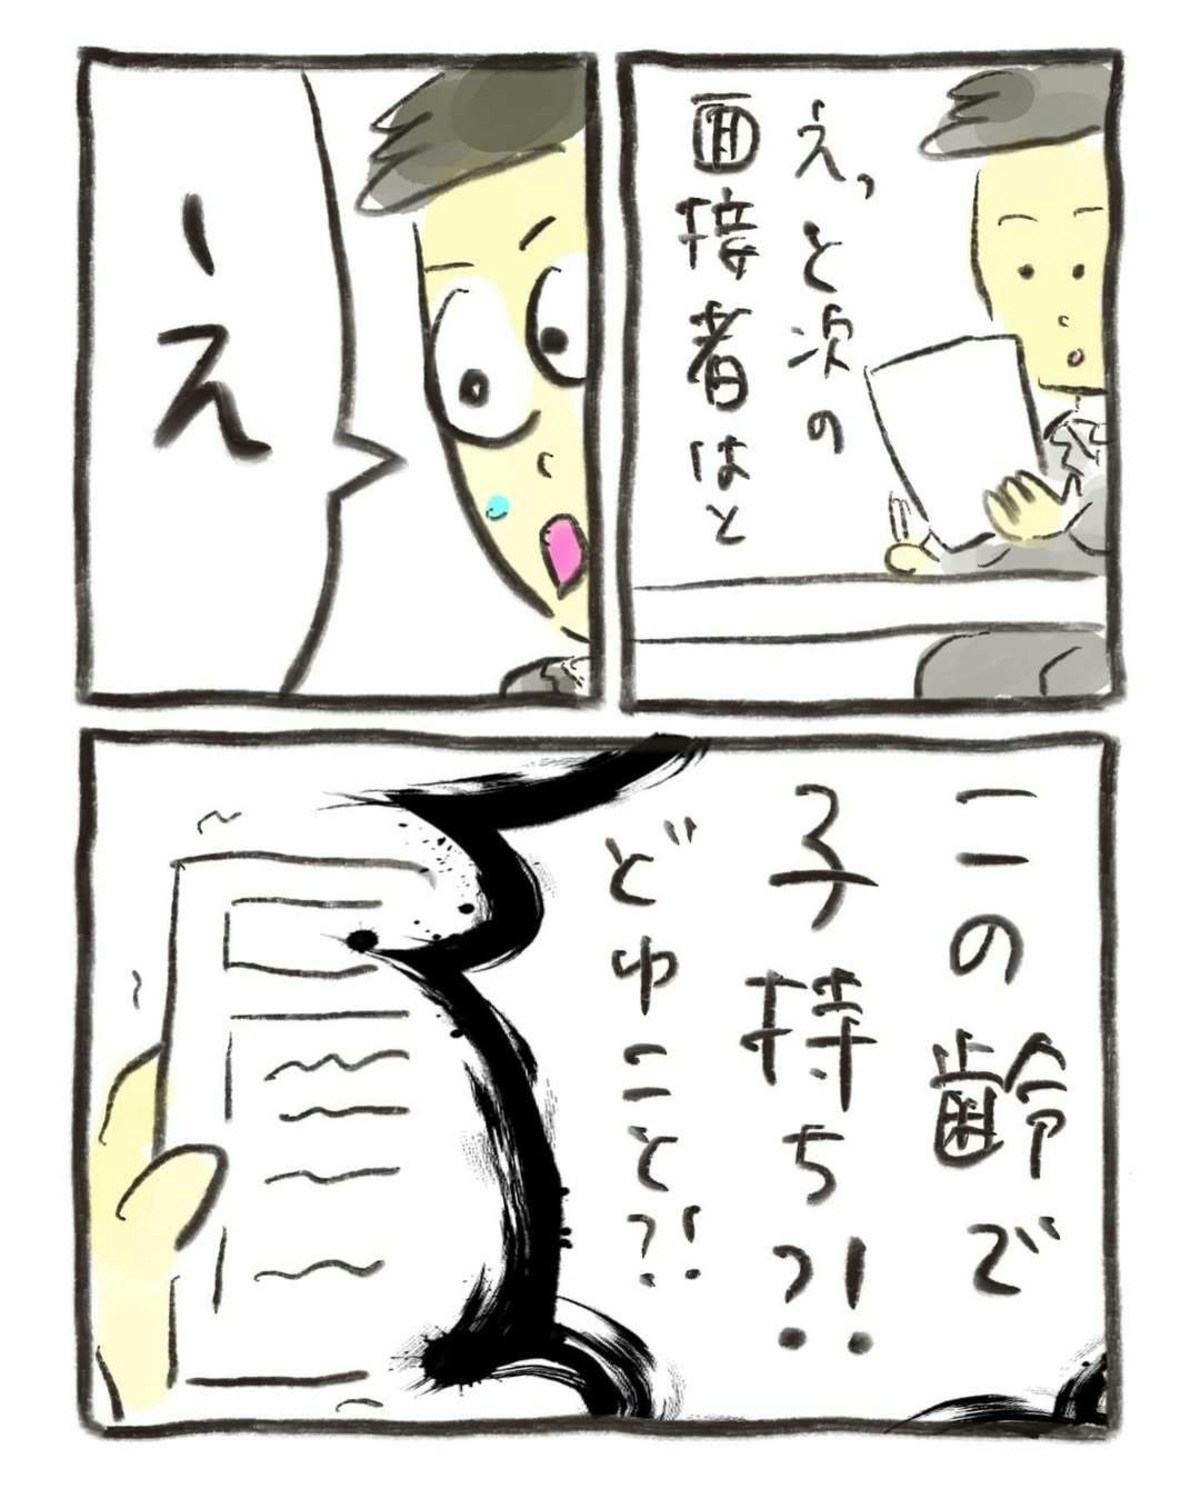 えっと次の
面接者はと
え
この齢で
子持ち?!
どゆこと?!